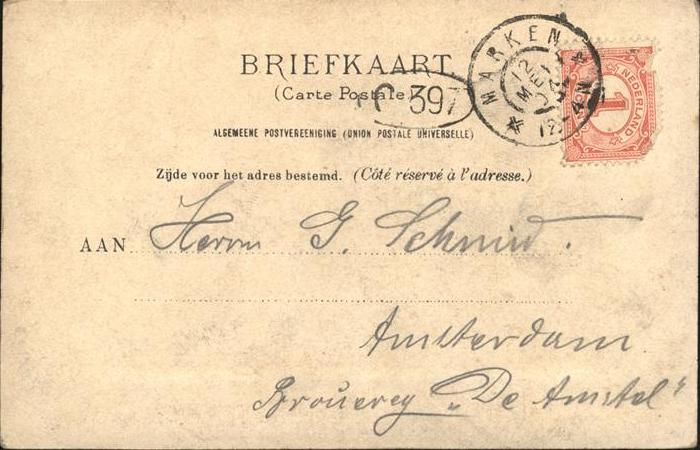 BRIEFKAART
(Carte Postale)
397
ALGEMEENE POSTVEREENIGING (UNION POSTALE UNIVERSELLE)
Zijde voor het adres bestemd. (Côté réservé à l'adresse.)
MARKEN
12 ME
12-4 N
NEDERLAND
1
AAN Herrn G. Schmid.
Amsterdam
Brouerey „De Amstel"